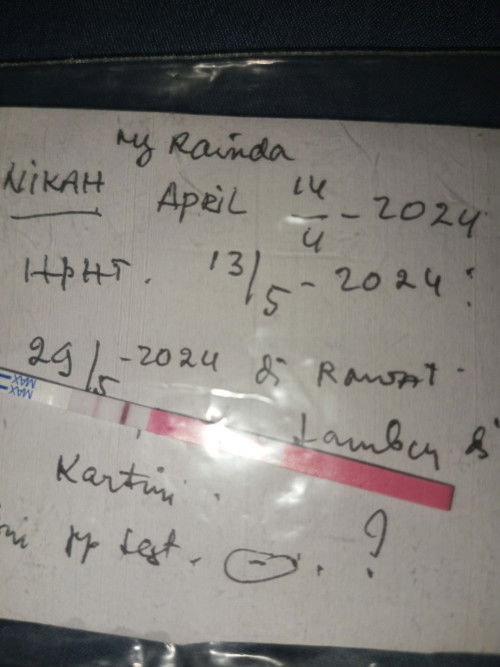 Ny Rainda
NIKAH APRIL 14/4 - 2024
HPHT. 13/5 - 2024 :
29/5 - 2024 di Rawat.
MAX MAX
di
Kartini.
test. (-). ?